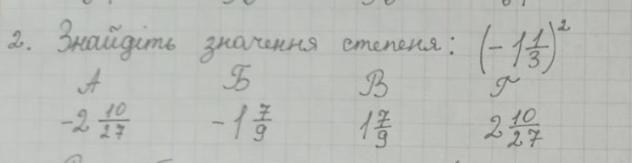 2. Знайдіть значення степеня: (-1 1/3)²
А Б В Г
-2 10/27 -1 7/9 1 7/9 2 10/27